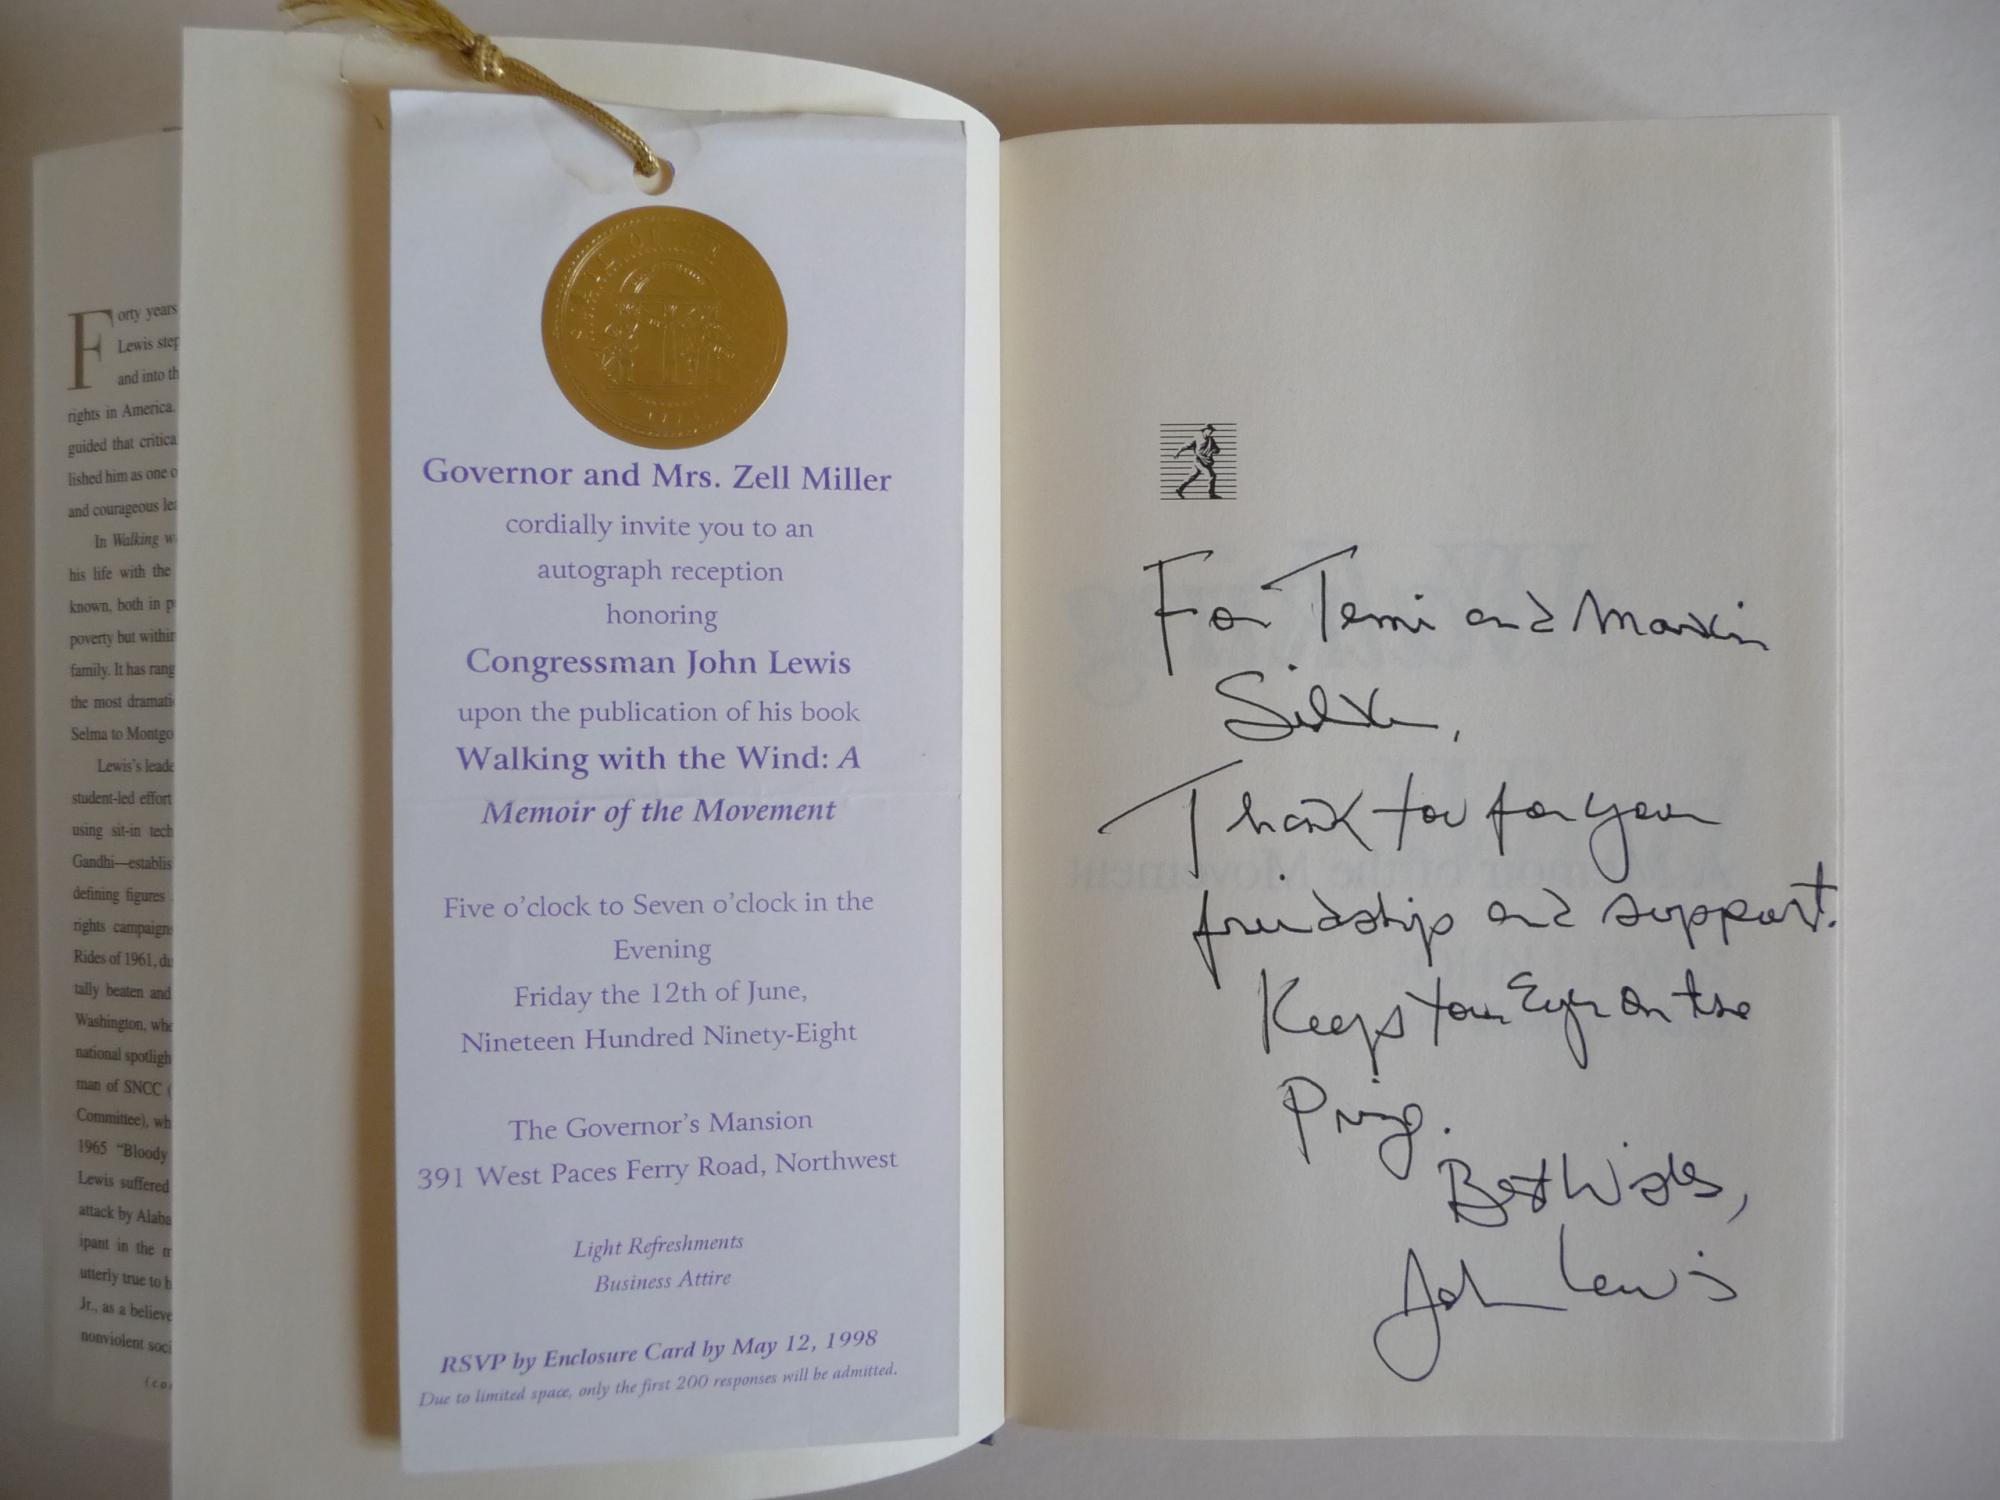 Forty years
Lewis step
and into th
rights in America.
guided that critica
lished him as one o
and courageous lea
In Walking w
his life with the
known, both in p
poverty but within
family. It has rang
the most dramati
Selma to Montgo
Lewis's leade
student-led effort
using sit-in tech
Gandhi—establis
defining figures
rights campaign
Rides of 1961, du
tally beaten and
Washington, whe
national spotligh
man of SNCC (
Committee), wh
1965 "Bloody
Lewis suffered
attack by Alaba
ipant in the m
utterly true to h
Jr., as a believe
nonviolent soci
(co
STATE OF
1776
Governor and Mrs. Zell Miller
cordially invite you to an
autograph reception
honoring
Congressman John Lewis
upon the publication of his book
Walking with the Wind: A
Memoir of the Movement
Five o'clock to Seven o'clock in the
Evening
Friday the 12th of June,
Nineteen Hundred Ninety-Eight
The Governor's Mansion
391 West Paces Ferry Road, Northwest
Light Refreshments
Business Attire
RSVP by Enclosure Card by May 12, 1998
Due to limited space, only the first 200 responses will be admitted.
For Temi and Marvin
Silver,
Thank you for your
friendship and support.
Keep your Eyes on the
Prize.
Best Wishes,
John Lewis